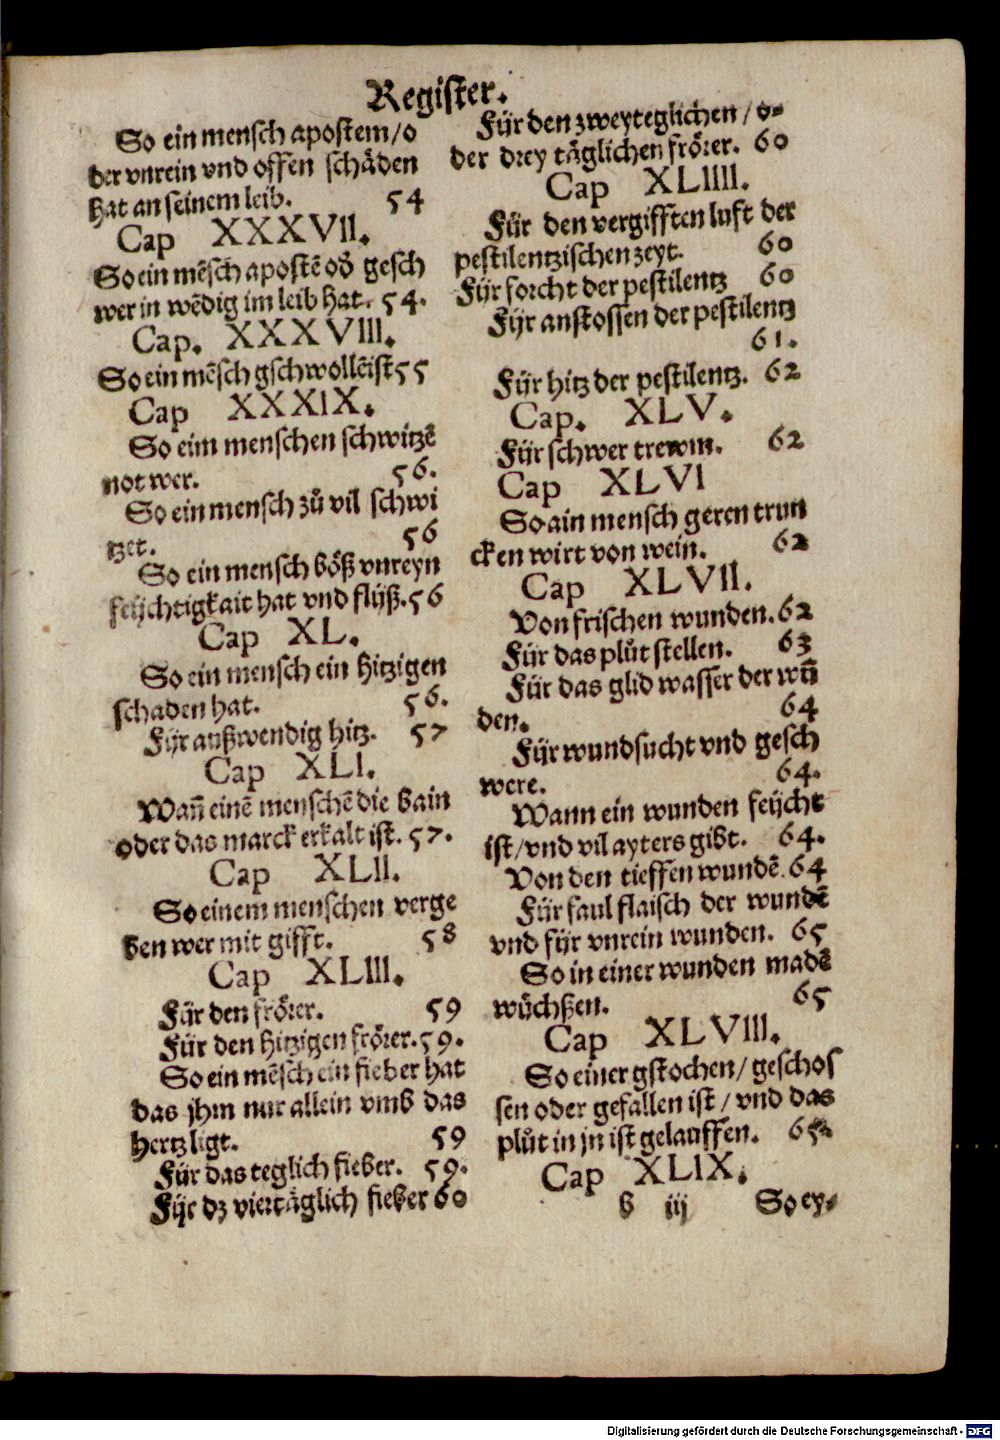 Register.
So ein mensch apostem/o
der vnrein vnd offen schåden
hat an seinem leib. 54
Cap XXXVII.
So ein mēsch apostē od̄ gesch
wer in wēdig im leib hat. 54.
Cap. XXXVIII.
So ein mēsch gschwollē ist 55
Cap XXXIX.
So eim menschen schwitzē
not wer. 56.
So ein mensch zů vil schwi
tzet. 56
So ein mensch bőß vnreyn
feijchtigkait hat vnd flijß. 56
Cap XL.
So ein mensch ein hitzigen
schaden hat. 56.
Fijr außwendig hitz. 57
Cap XLI.
Wañ einē menschē die bain
oder das marck erkalt ist. 57.
Cap XLII.
So einem menschen verge
ben wer mit gifft. 58
Cap XLIII.
Für den frőrer. 59
Für den hitzigen frőrer. 59.
So ein mēsch ein fieber hat
das jhm nur allein vmb das
hertz ligt. 59
Für das teglich fieber. 59.
Fijr dz viertåglich fieber 60
Für den zweyteglichen/o-
der drey tåglichen frőrer. 60
Cap XLIIII.
Für den vergifften luft der
pestilentzischen zeyt. 60
Fijr forcht der pestilentz 60
Fijr anstossen der pestilentz
61.
Für hitz der pestilentz. 62
Cap. XLV.
Für schwer trewm. 62
Cap XLVI
So ain mensch geren trun
cken wirt von wein. 62
Cap XLVII.
Von frischen wunden. 62
Für das plůt stellen. 63
Für das glid wasser der wū
den. 64
Fijr wundsucht vnd gesch
were. 64.
Wann ein wunden feijcht
ist/vnd vil ayters gibt. 64.
Von den tieffen wundē. 64
Für faul flaisch der wundē
vnd fijr vnrein wunden. 65
So in einer wunden madē
wůchßen. 65
Cap XLVIII.
So einer gstochen/geschos
sen oder gefallen ist/vnd das
plůt in jn ist gelauffen. 65.
Cap XLIX.
b iij So ey-
Digitalisierung gefördert durch die Deutsche Forschungsgemeinschaft - DFG